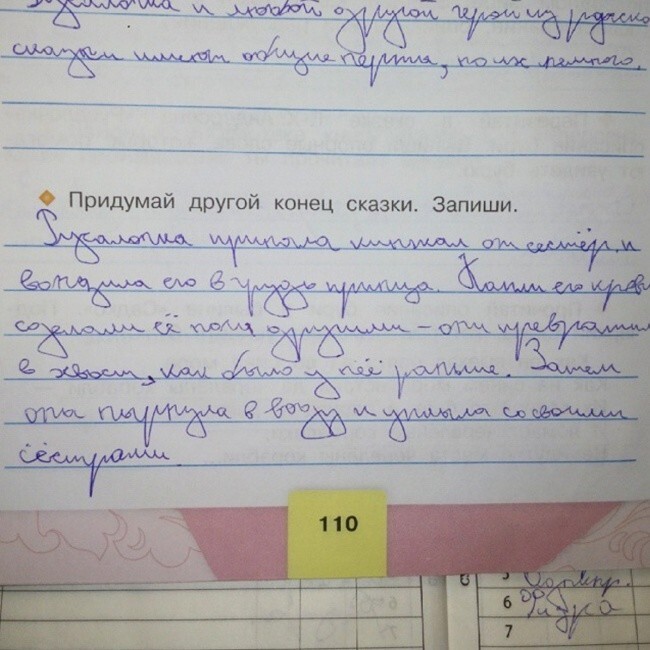 Русалочка и любой другой герой из русск
сказки имеют общие черты, но их немного.
Придумай другой конец сказки. Запиши.
Русалочка приняла кинжал от сестёр и
вонзила его в грудь принца. Капли его крови
сделали её ноги другими – они превратили
в хвост, как было у неё раньше. Затем
она нырнула в воду и уплыла со своими
сёстрами.
110
5
6 Физ-ра
7